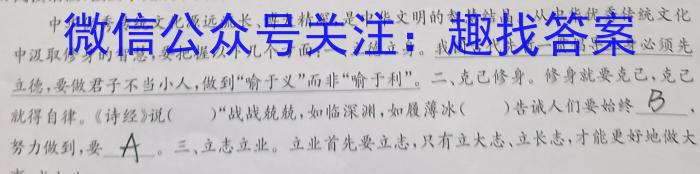 中
文化
远流长、
精
是中华文明的智
结晶
从中华优秀传统文化
微信公众号关注：趣找答案
中汲取修身的智慧，要把握以下几个方面：一、
德立身。我
代先
必须先
立德，要做君子不当小人，做到“喻于义”而非“喻于利”。二、克己修身。修身就要克己，克己
就得自律。《诗经》说(　　)“战战兢兢，如临深渊，如履薄冰(　　)告诫人们要始终 B
努力做到，要 A 。三、立志立业。立业首先要立志，只有立大志、立长志，才能更好地做大